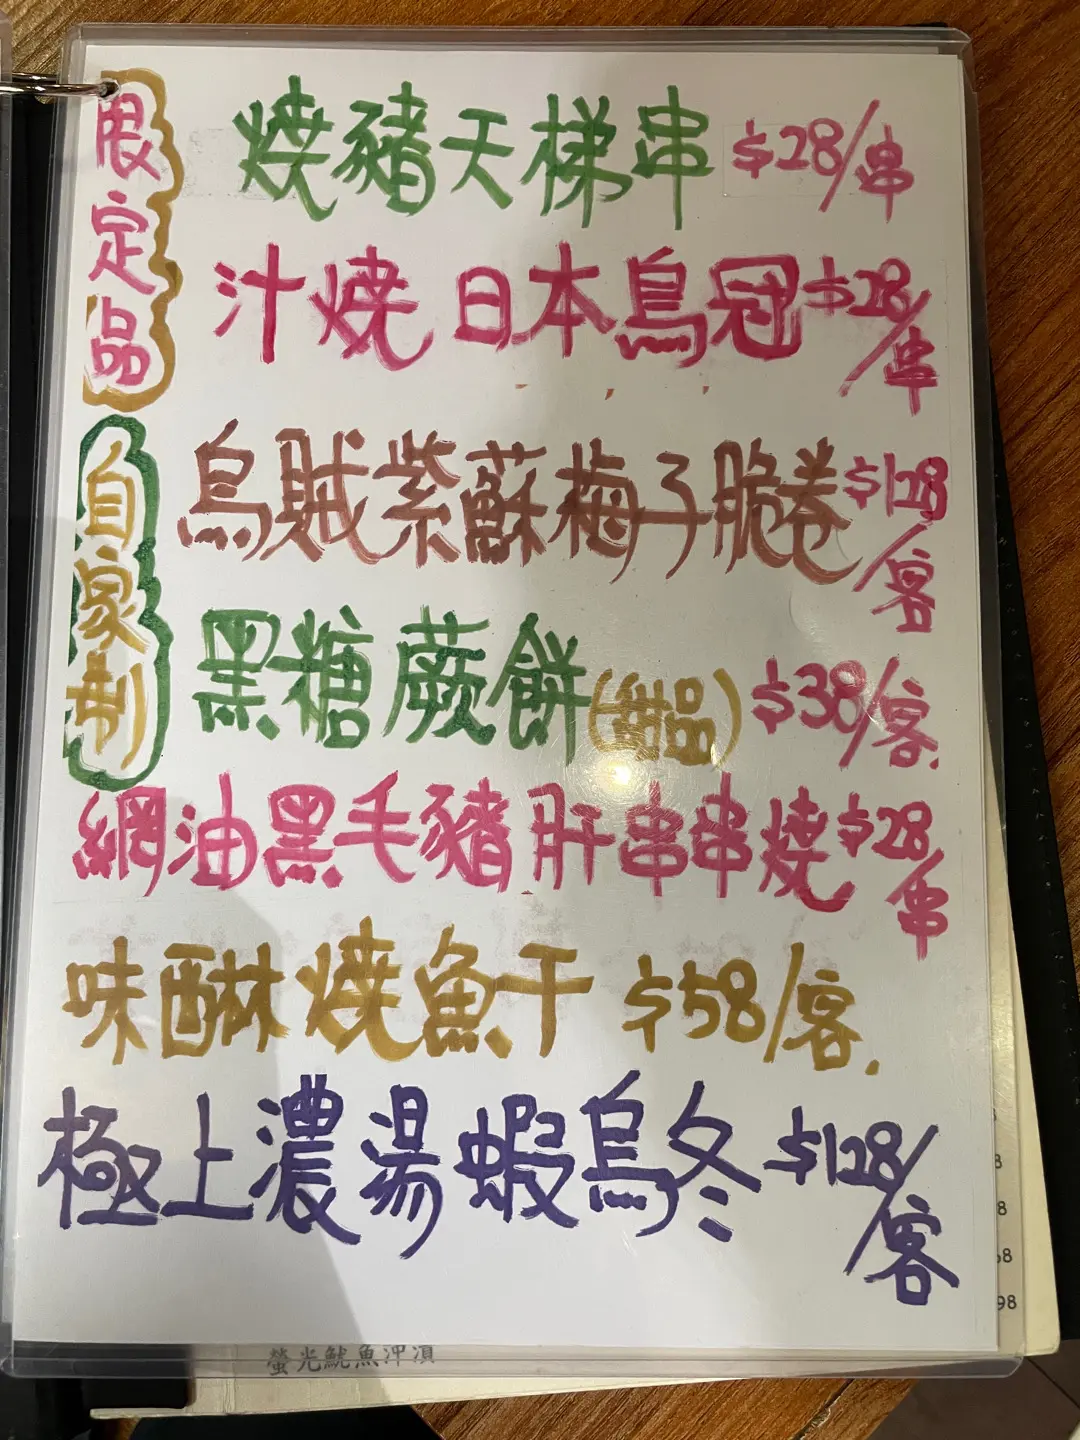 限定品
燒豬天梯串 $28/串
汁燒 日本鳥冠 $28/串
自家制
烏賊紫蘇梅子脆卷 $128/客
黑糖蕨餅(甜品) $38/客.
網油黑毛豬肝串串燒 $28/串
味醂燒魚干 $58/客.
極上濃湯 蝦烏冬 $128/客
螢光魷魚沖漬
8
8
68
98